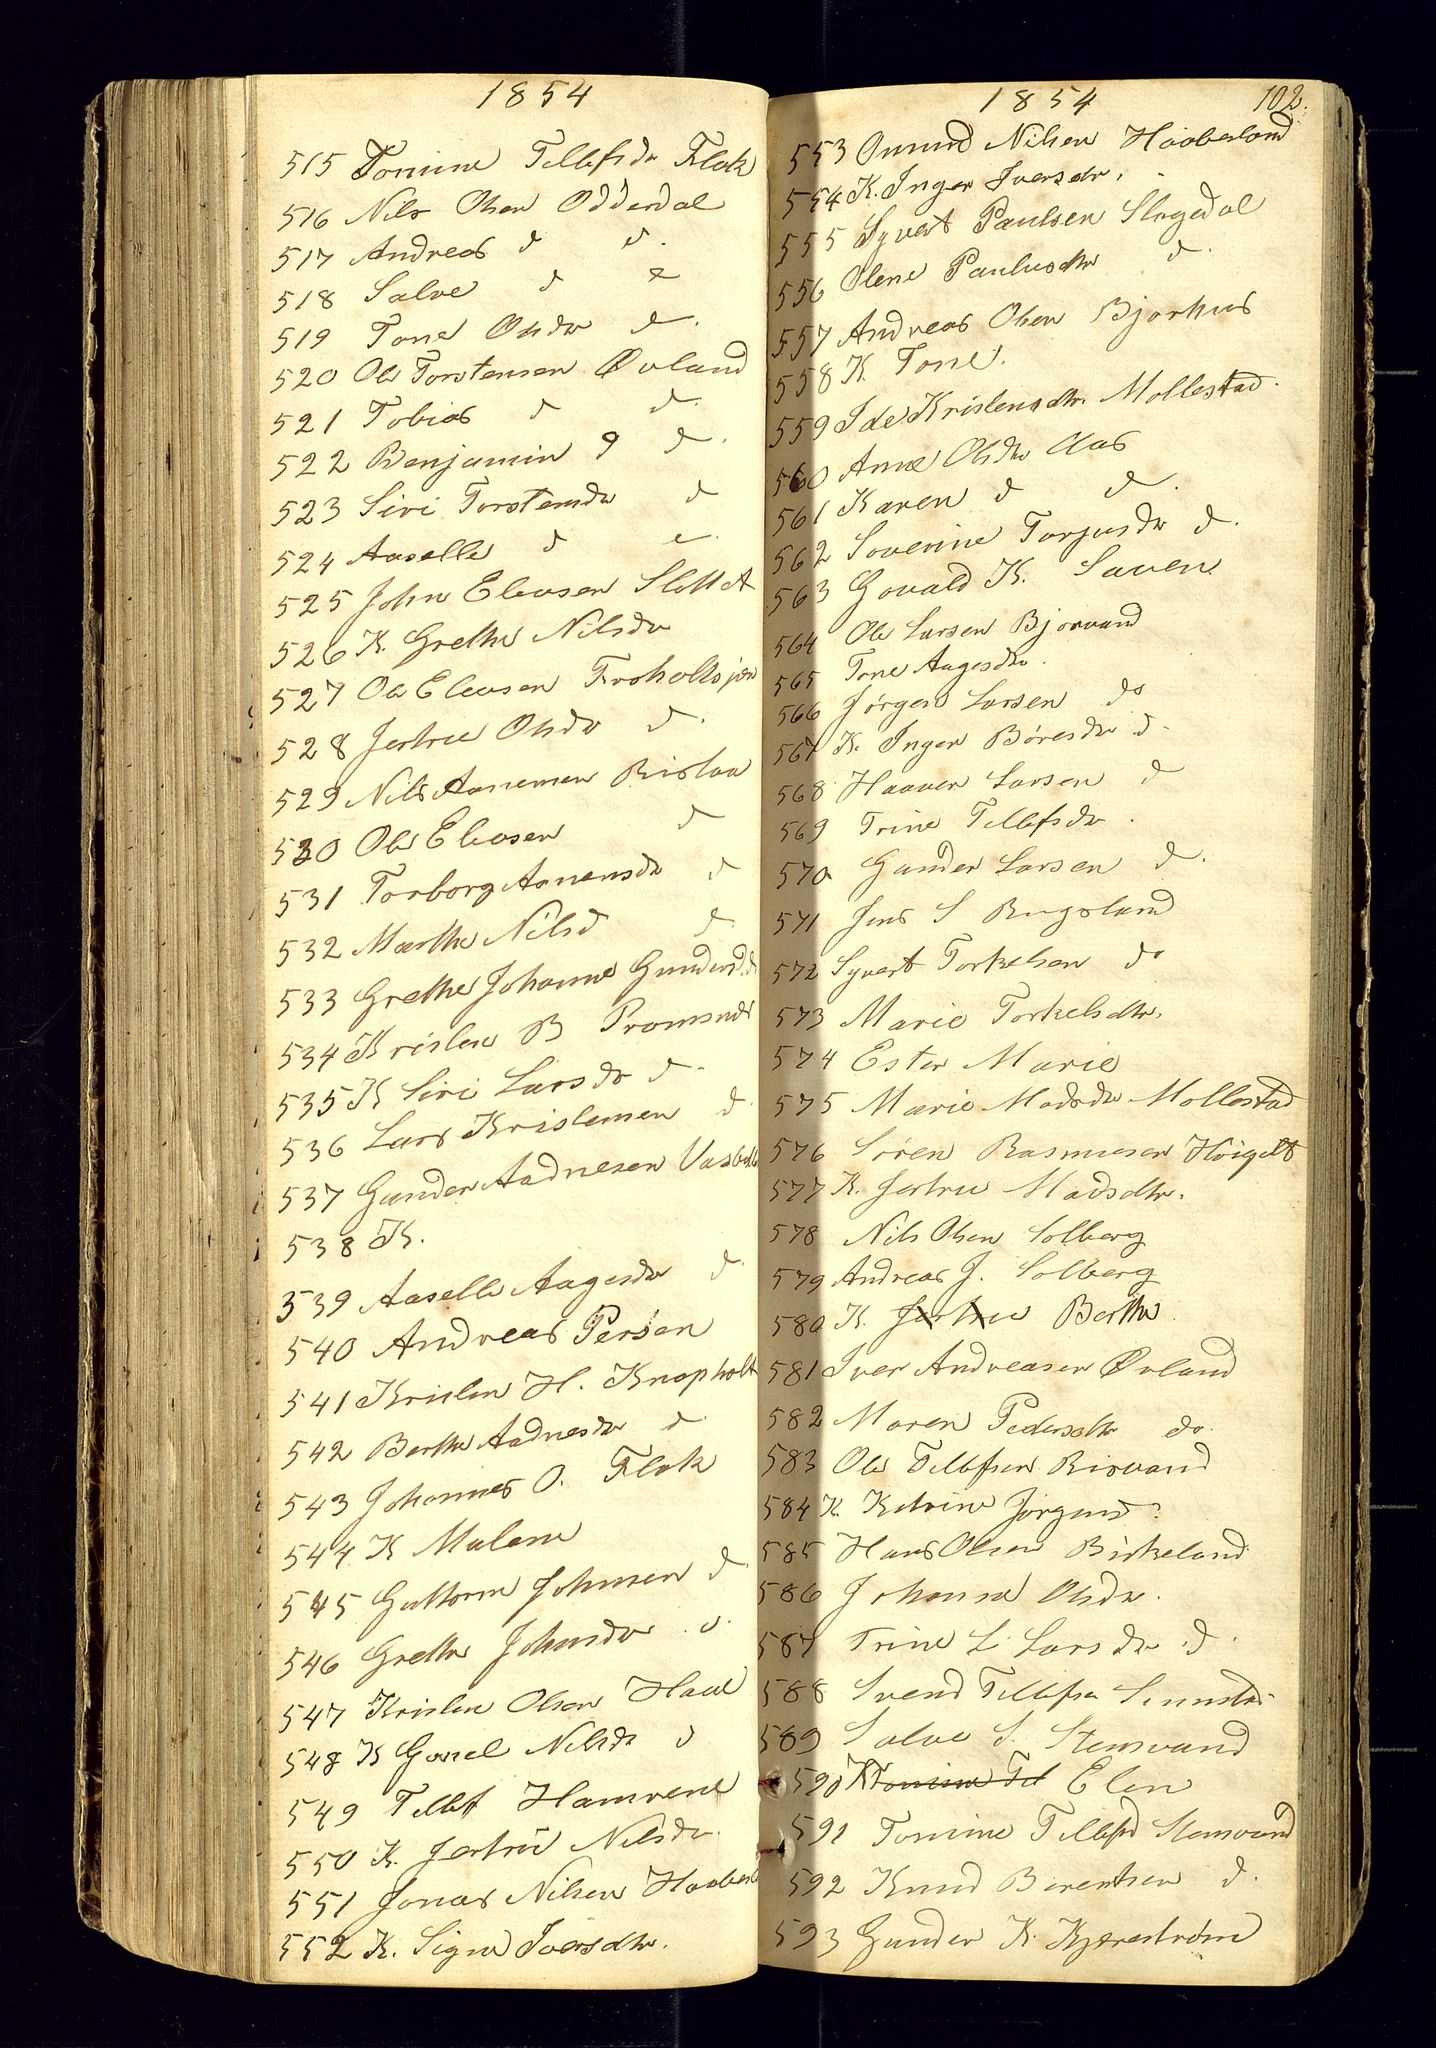 1854
515 Tomine Tellefsdr Flak
516 Nils Olsen Odderdal
517 Andreas d d.
518 Salve d d
519 Tone Olsdr d.
520 Ole Torstensen Øvland
521 Tobias d d.
522 Benjamin d d.
523 Siri Torstensdr d
524 Aaselle d d.
525 John Eleosen Slottet
526 K. Grethe Nilsdr
527 Ole Eleosen Froholtsjen
528 Jertru Olsdr d.
529 Nils Aanensen Rislaa
530 Ole Eleosen d
531 Torborg Aanensdr d
532 Marthe Nilsd d
533 Grethe Johanne Gundersd. d
534 Kristen B Promsnes
535 K Siri Larsdr d.
536 Lars Kristensen d.
537 Gunder Aadnesen
538 K.
539 Aaselle Aagesdr d.
540 Andreas Persen
541 Kristen H. Knapholt
542 Berthe Aadnesdr d.
543 Johannes O. Flak
544 K Malene
545 Guttorm Johnsen d.
546 Grethe Johnsdr d.
547 Kristen Olsen Haae
548 K Gonel Nilsdr d
549 Tellef Hamrene
550 K. Jertru Nilsdr.
551 Jonas Nilsen Haaberl
552 K. Signe Iversdtr.
1854 102.
553 Omund Nilsen Haaberland
554 K. Inger Iversdtr.
555 Syvert Paulsen Slogedal
556 Olene Paulusdtr d.
557 Andreas Olsen Bjorhus
558 K. Tone.
559 Ide Kristensdtr. Mollestad.
560 Anne Olsdtr Aas
561 Karen d d.
562 Soverine Torjusdr d.
563 Govald K. Saven
564 Ole Larsen Bjorvand
565 Tone Aagesdtr.
566 Jørgen Larsen do
567 K. Inger Børesdr d.
568 Haaver Larsen d
569 Trine Tellefsdr.
570 Gunder Larsen d.
571 Jens S Rugsland
572 Syvert Torkelsen do
573 Marie Torkelsdtr.
574 Ester Marie
575 Marie Madsdr Mollestad
576 Søren Rasmusen Høigelt
577 K. Jertru Madsdtr.
578 Nils Olsen Solberg
579 Andreas J. Solberg
580 K. Jertru Berthe
581 Iver Andreasen Øvland
582 Maren Pedersdtr do.
583 Ole Tellefsen Risvand
584 K. Katrine Jørgensd.
585 Hans Olsen Birkeland
586 Johanne Olsdr.
587 Trine L. Larsdr d.
588 Svend Tellefsen
589 Salve S. Stemvand
590 K Tomine Tel Elen
591 Tomine Tellefsd Stemvand
592 Knud Berentsen d.
593 Gunder K. Kjerestrøm